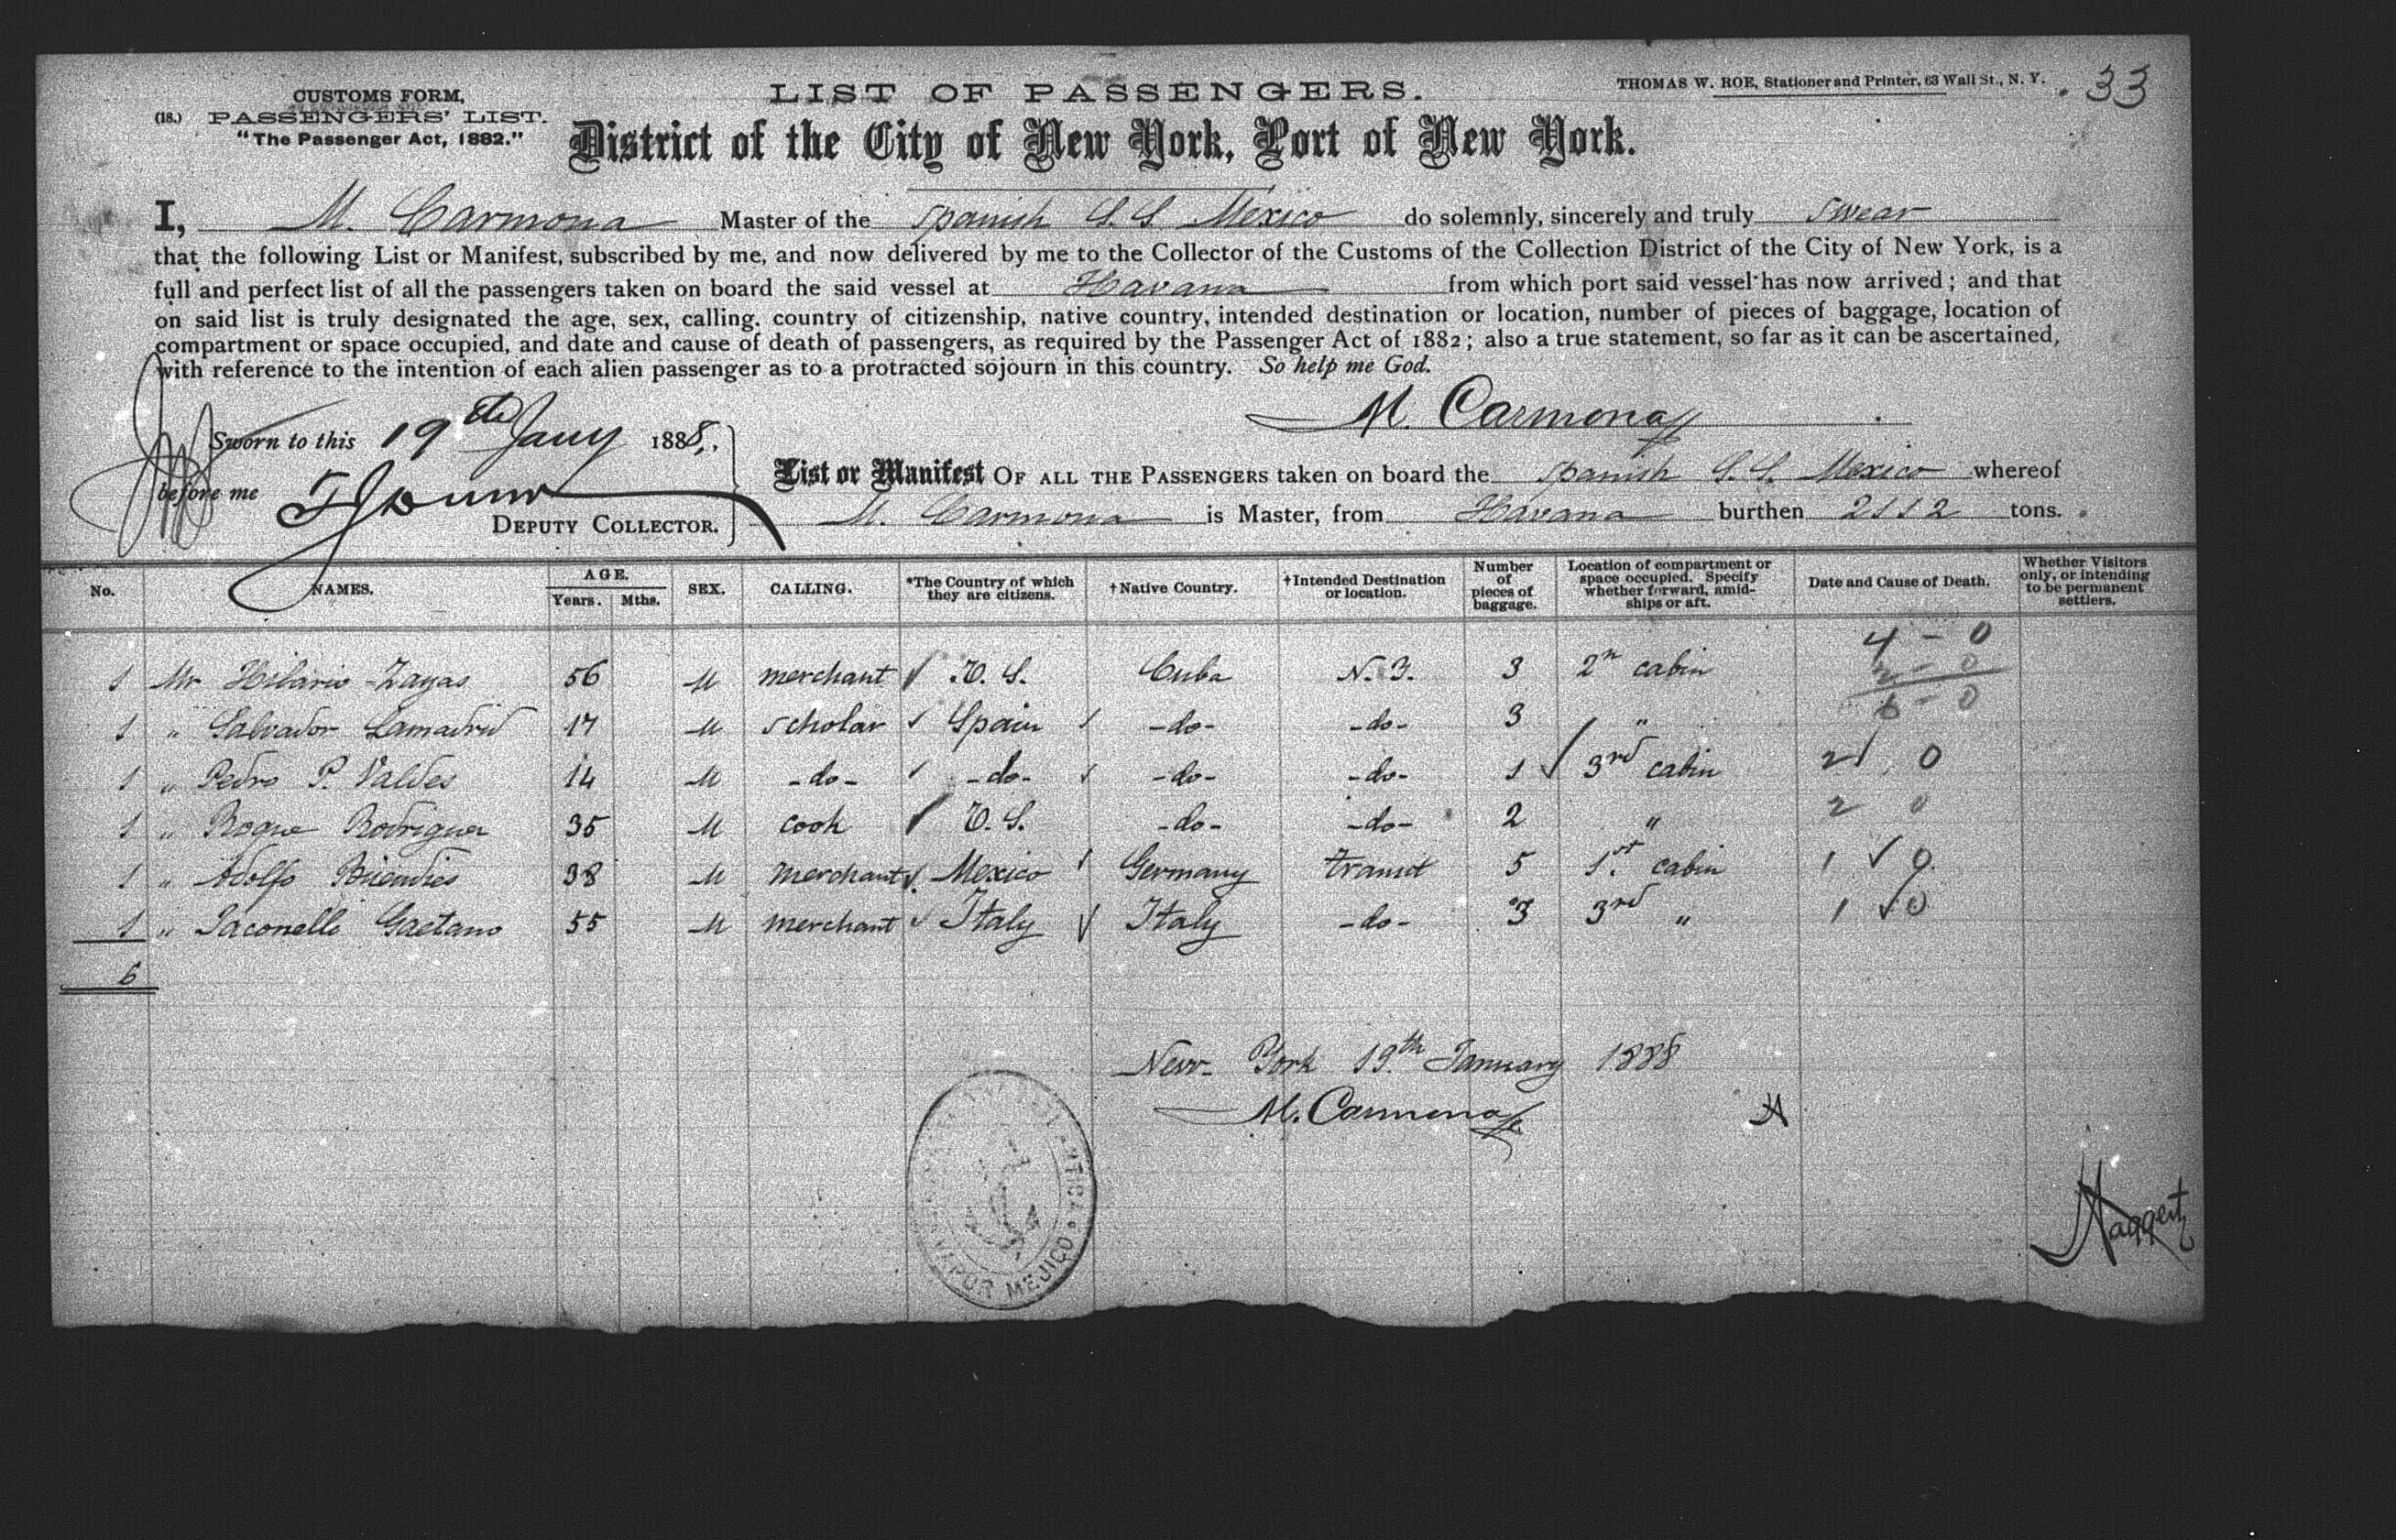 CUSTOMS FORM,
(18.) PASSENGERS' LIST.
"The Passenger Act, 1882."
LIST OF PASSENGERS.
THOMAS W. ROE, Stationer and Printer, 63 Wall St., N. Y.
33
District of the City of New York, Port of New York.
I, M. Carmona Master of the Spanish S.S. Mexico do solemnly, sincerely and truly swear
that the following List or Manifest, subscribed by me, and now delivered by me to the Collector of the Customs of the Collection District of the City of New York, is a
full and perfect list of all the passengers taken on board the said vessel at Havana from which port said vessel has now arrived; and that
on said list is truly designated the age, sex, calling, country of citizenship, native country, intended destination or location, number of pieces of baggage, location of
compartment or space occupied, and date and cause of death of passengers, as required by the Passenger Act of 1882; also a true statement, so far as it can be ascertained,
with reference to the intention of each alien passenger as to a protracted sojourn in this country. So help me God.
M. Carmona
Sworn to this 19th Jany 1888,
before me
DEPUTY COLLECTOR.
List or Manifest OF ALL THE PASSENGERS taken on board the Spanish S.S. Mexico whereof
M. Carmona is Master, from Havana burthen 2112 tons.
No. NAMES. AGE. Years. Mths. SEX. CALLING. *The Country of which they are citizens. †Native Country. †Intended Destination or location. Number of pieces of baggage. Location of compartment or space occupied. Specify whether forward, amidships or aft. Date and Cause of Death. Whether Visitors only, or intending to be permanent settlers.
4 - 0
2 - 0
6 - 0
1 Mr Hilario Zayas 56 M merchant U.S. Cuba N.Y. 3 2n cabin
1 " Salvador Lamadrid 17 M scholar Spain -do- -do- 3 "
1 " Pedro P. Valdes 14 M -do- -do- -do- -do- 1 3rd cabin 2 0
1 " Roque Rodriguez 35 M cook U.S. -do- -do- 2 " 2 0
1 " Adolfo 38 M merchant Mexico Germany transit 5 1st. cabin 1 0
1 " Iaconelli Gaetano 55 M merchant Italy Italy -do- 3 3rd " 1 0
6
New York 19th January 1888
M. Carmona
VAPOR MEJICO
Haggerty